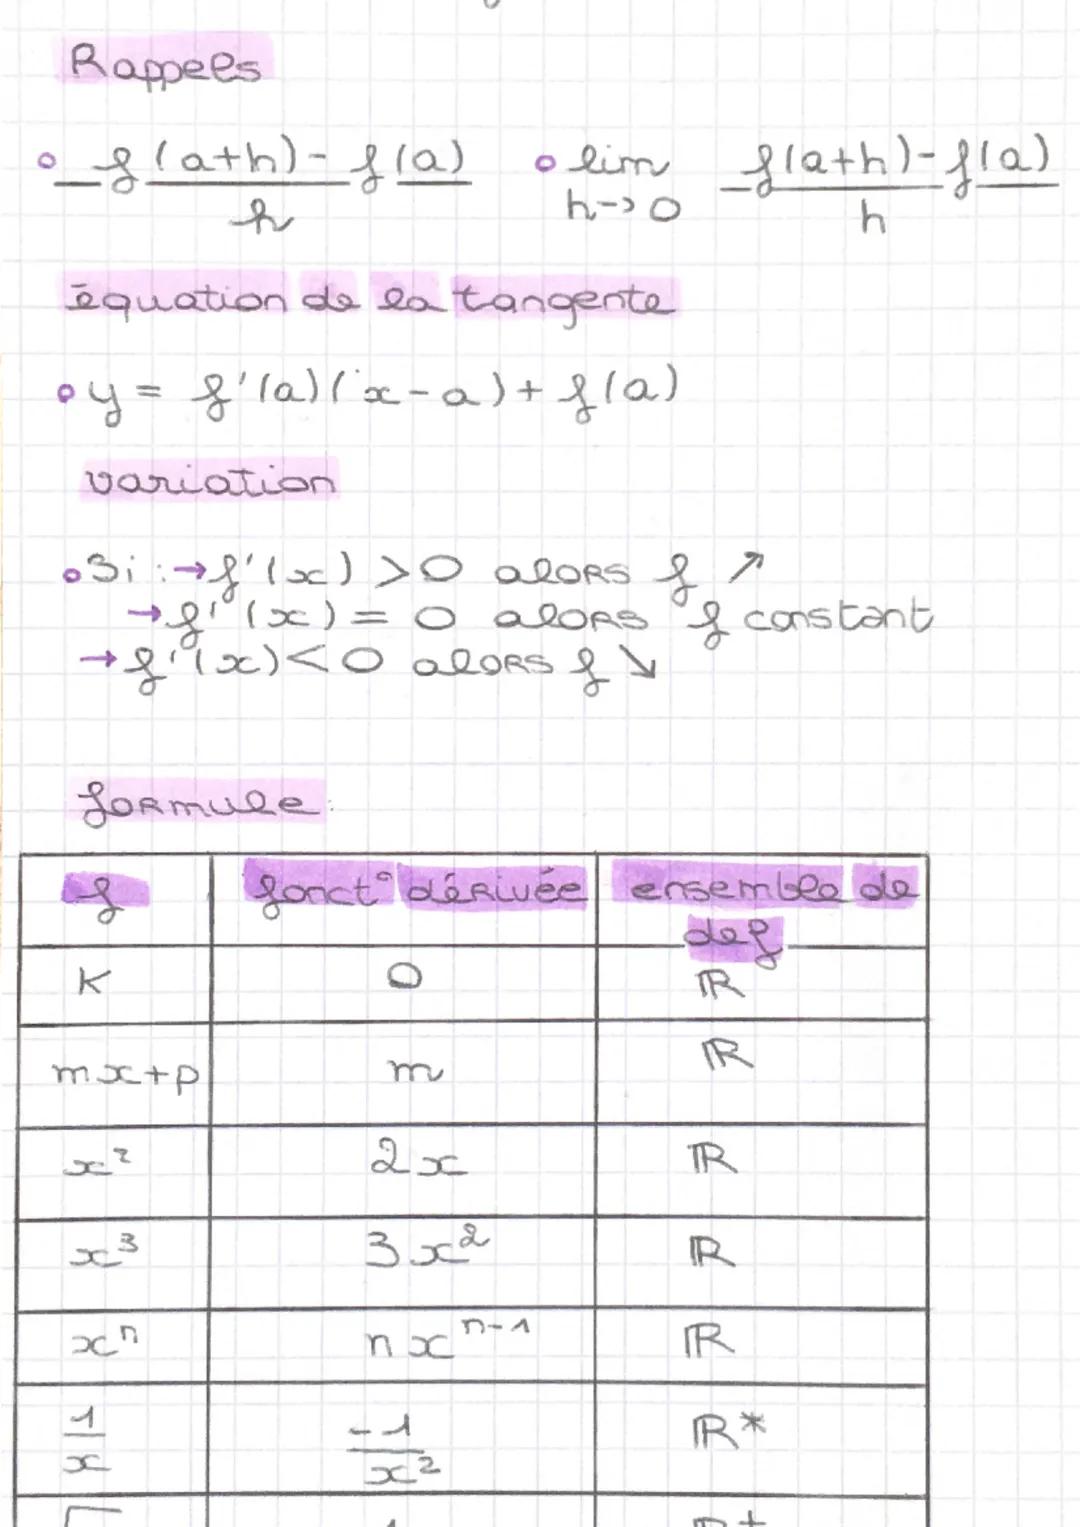 Rappels
° f(a+h)-f(a) / h ° lim h->0 f(a+h)-f(a) / h
équation de la tangente
° y = f'(a)(x-a)+f(a)
variation
° Si : → f'(x) > 0 alors f ↗
→ f'(x) = 0 alors f constant
→ f'(x) < 0 alors f ↘
formule :
f | fonct° dérivée | ensemble de def
K | 0 | ℝ
mx+p | m | ℝ
x² | 2x | ℝ
x³ | 3x² | ℝ
xⁿ | nxⁿ⁻¹ | ℝ
1/x | -1/x² | ℝ*